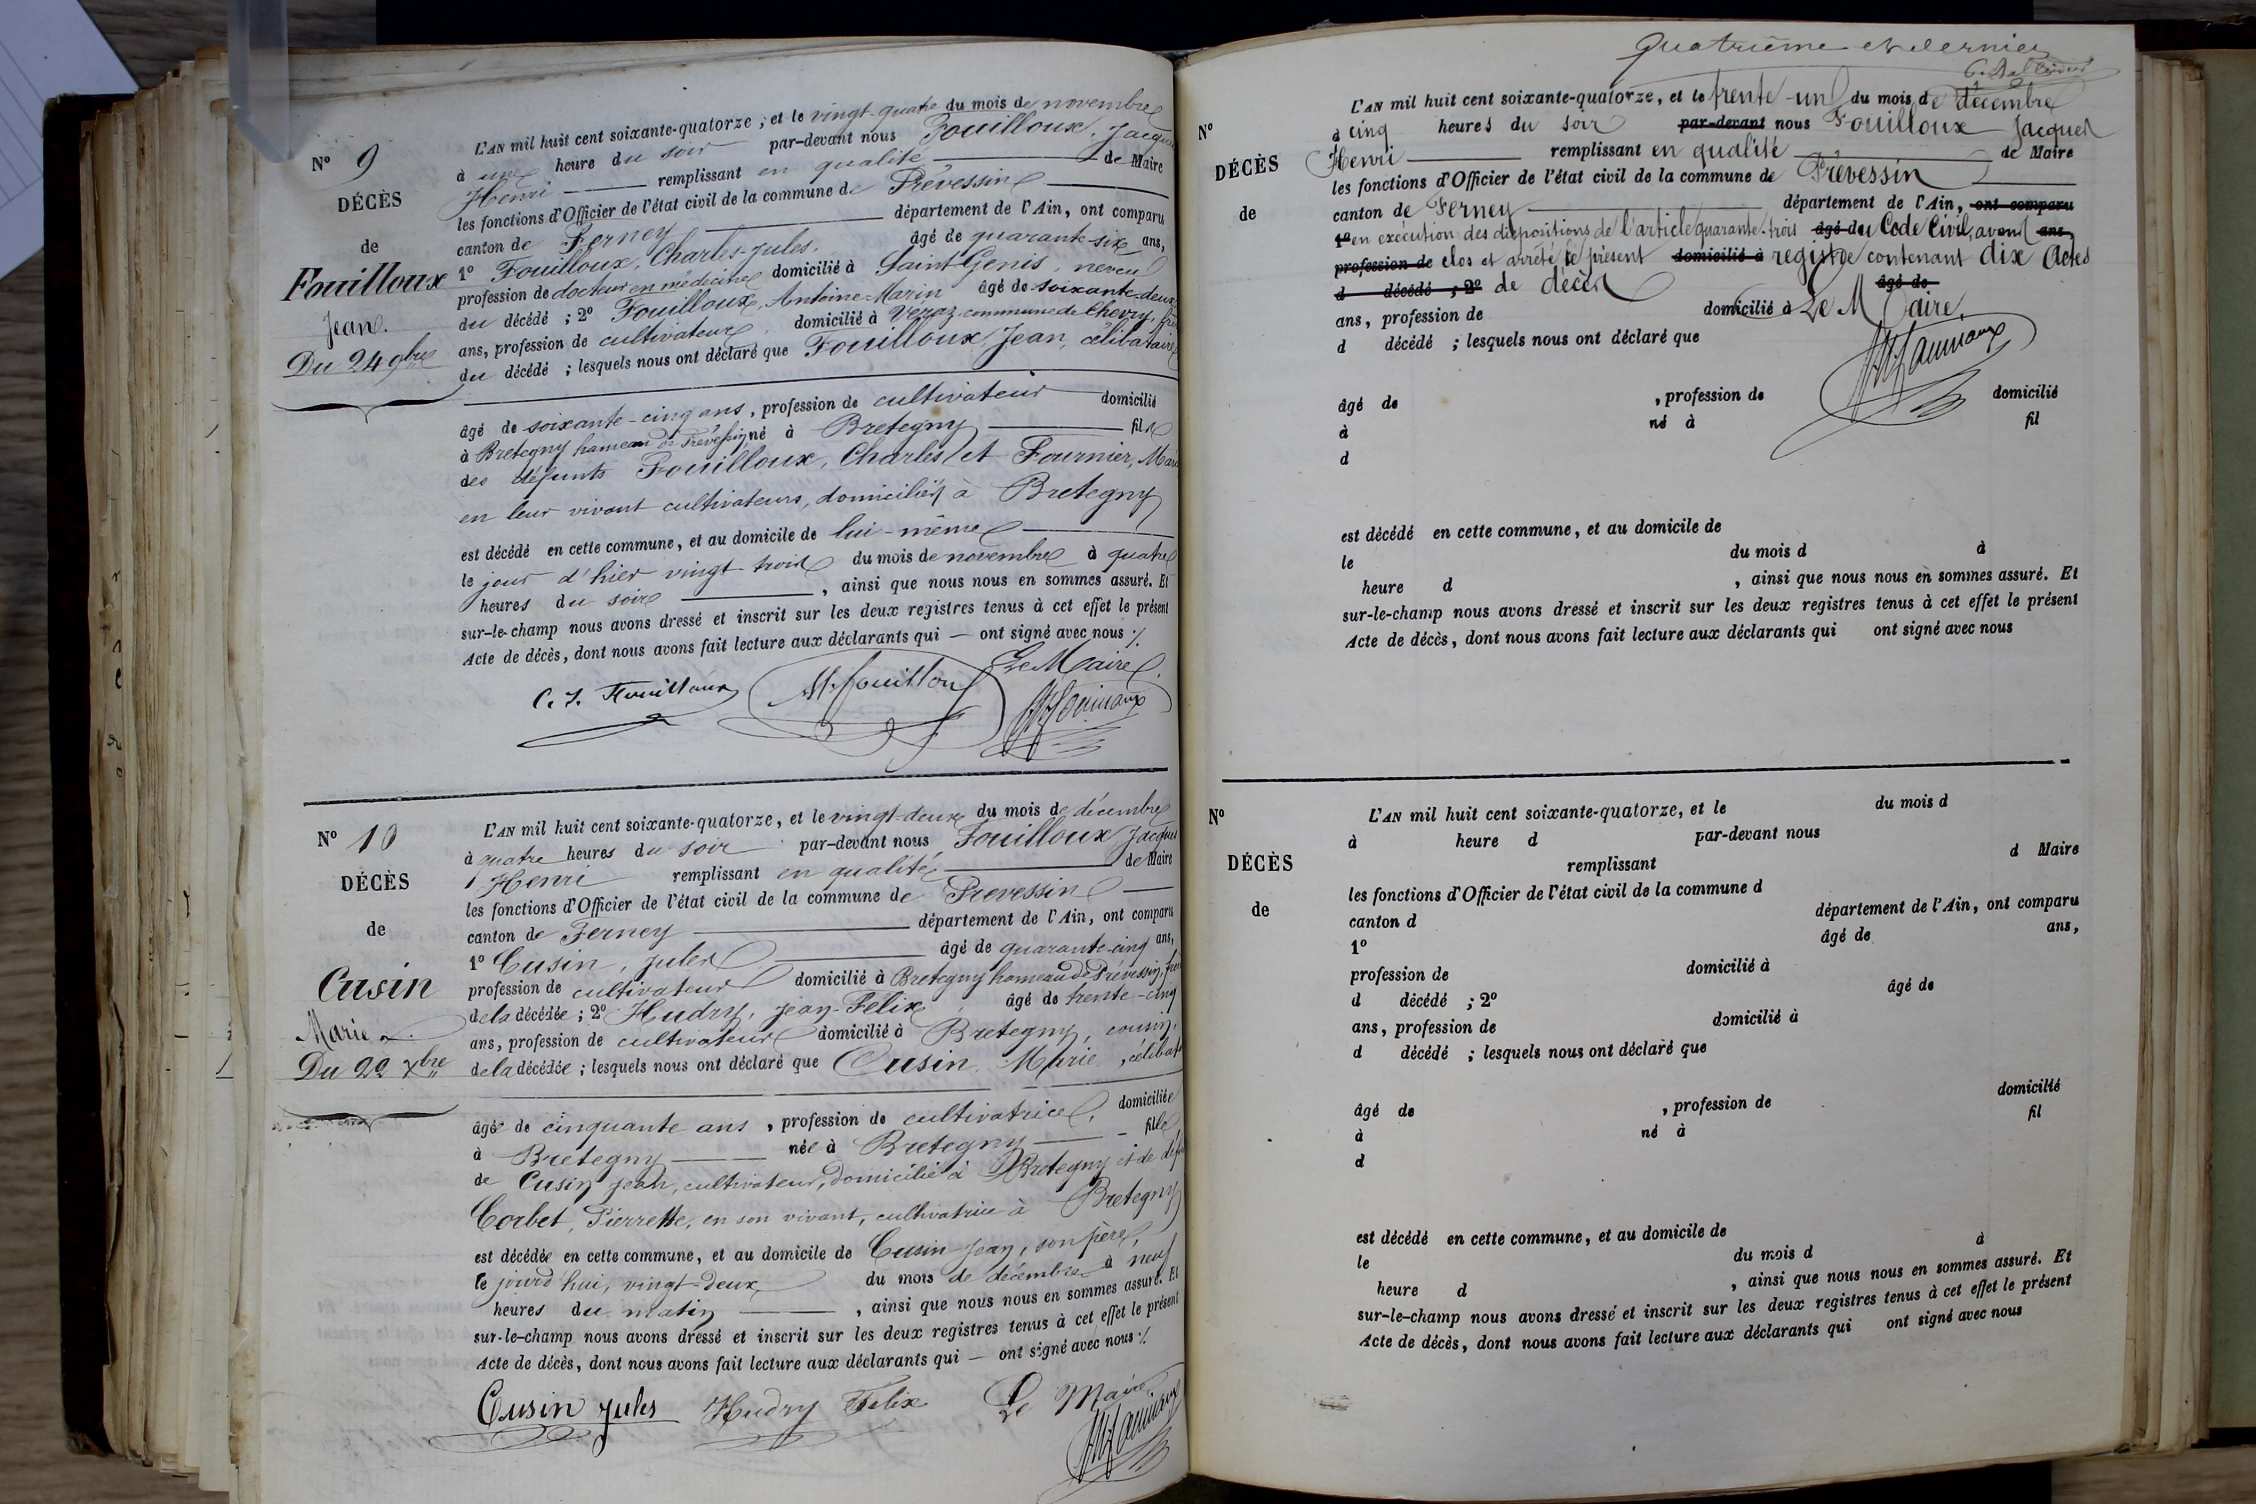 N° 9
DÉCÈS
de
Fouilloux
Jean.
Du 24 9bre
L'AN mil huit cent soixante-quatorze, et le vingt-quatre du mois de novembre
à une heure du soir par-devant nous Fouilloux, Jacques
Henri remplissant en qualité de Maire
les fonctions d'Officier de l'état civil de la commune de Prévessin
canton de Ferney département de l'Ain, ont comparu
1° Fouilloux, Charles-Jules. âgé de quarante-six ans,
profession de docteur en médecine domicilié à Saint Genis, neveu
du décédé ; 2° Fouilloux, Antoine-Marin âgé de soixante-deux
ans, profession de cultivateur, domicilié à Veraz commune de Chevry, frère
du décédé ; lesquels nous ont déclaré que Fouilloux, Jean, célibataire
âgé de soixante-cinq ans, profession de cultivateur domicilié
à Bretegny hameau de Prévessin, né à Bretegny fils
des défunts Fouilloux, Charles et Fournier, Marie
en leur vivant cultivateurs, domiciliés à Bretegny
est décédé en cette commune, et au domicile de lui-même
le jour d'hier vingt-trois du mois de novembre à quatre
heures du soir, ainsi que nous nous en sommes assuré. Et
sur-le-champ nous avons dressé et inscrit sur les deux registres tenus à cet effet le présent
Acte de décès, dont nous avons fait lecture aux déclarants qui — ont signé avec nous ./.
Le Maire.
C. J. Fouilloux M. fouilloux
N° 10
DÉCÈS
de
Cusin
Marie
Du 22 Xbre
L'AN mil huit cent soixante-quatorze, et le vingt-deux du mois de décembre
à quatre heures du soir par-devant nous Fouilloux Jacques
Henri remplissant en qualité de Maire
les fonctions d'Officier de l'état civil de la commune de Prevessin
canton de Ferney département de l'Ain, ont comparu
1° Cusin, Jules âgé de quarante-cinq ans,
profession de cultivateur domicilié à Bretegny hameau de Prévessin, frère
de la décédée ; 2° Hudry, Jean-Felix, âgé de trente-cinq
ans, profession de cultivateur domicilié à Bretegny, cousin,
de la décédée ; lesquels nous ont déclaré que Cusin, Marie, célibat
âgée de cinquante ans, profession de cultivatrice, domiciliée
à Bretegny née à Bretegny fille
de Cusin Jean, cultivateur, domicilié à Bretegny et de déf
Corbet, Pierrette, en son vivant, cultivatrice à Bretegny
est décédée en cette commune, et au domicile de Cusin Jean, son père,
le jourd'hui, vingt-deux du mois de décembre à neuf
heures du matin, ainsi que nous nous en sommes assuré. Et
sur-le-champ nous avons dressé et inscrit sur les deux registres tenus à cet effet le présent
Acte de décès, dont nous avons fait lecture aux déclarants qui — ont signé avec nous ./.
Cusin Jules Hudry Felix Le Maire
Quatrième et dernier
N°
DÉCÈS
de
L'AN mil huit cent soixante-quatorze, et le trente-un du mois de décembre
à cinq heures du soir par-devant nous Fouilloux Jacques
Henri remplissant en qualité de Maire
les fonctions d'Officier de l'état civil de la commune de Prévessin
canton de Ferney département de l'Ain, ont comparu
1° en exécution des dispositions de l'article quarante-trois âgé du Code Civil, avons ans,
profession de clos et arrêté le présent domicilié à registre contenant dix Actes
d décédé ; 2° de décès âgé de
ans, profession de domicilié à Le Maire.
d décédé ; lesquels nous ont déclaré que
âgé de , profession de domicilié
à né à fil
d
est décédé en cette commune, et au domicile de
le du mois d à
heure d , ainsi que nous nous en sommes assuré. Et
sur-le-champ nous avons dressé et inscrit sur les deux registres tenus à cet effet le présent
Acte de décès, dont nous avons fait lecture aux déclarants qui ont signé avec nous
N°
DÉCÈS
de
L'AN mil huit cent soixante-quatorze, et le du mois d
à heure d par-devant nous
remplissant d Maire
les fonctions d'Officier de l'état civil de la commune d
canton d département de l'Ain, ont comparu
1° âgé de ans,
profession de domicilié à
d décédé ; 2° âgé de
ans, profession de domicilié à
d décédé ; lesquels nous ont déclaré que
âgé de , profession de domicilié
à né à fil
d
est décédé en cette commune, et au domicile de
le du mois d à
heure d , ainsi que nous nous en sommes assuré. Et
sur-le-champ nous avons dressé et inscrit sur les deux registres tenus à cet effet le présent
Acte de décès, dont nous avons fait lecture aux déclarants qui ont signé avec nous